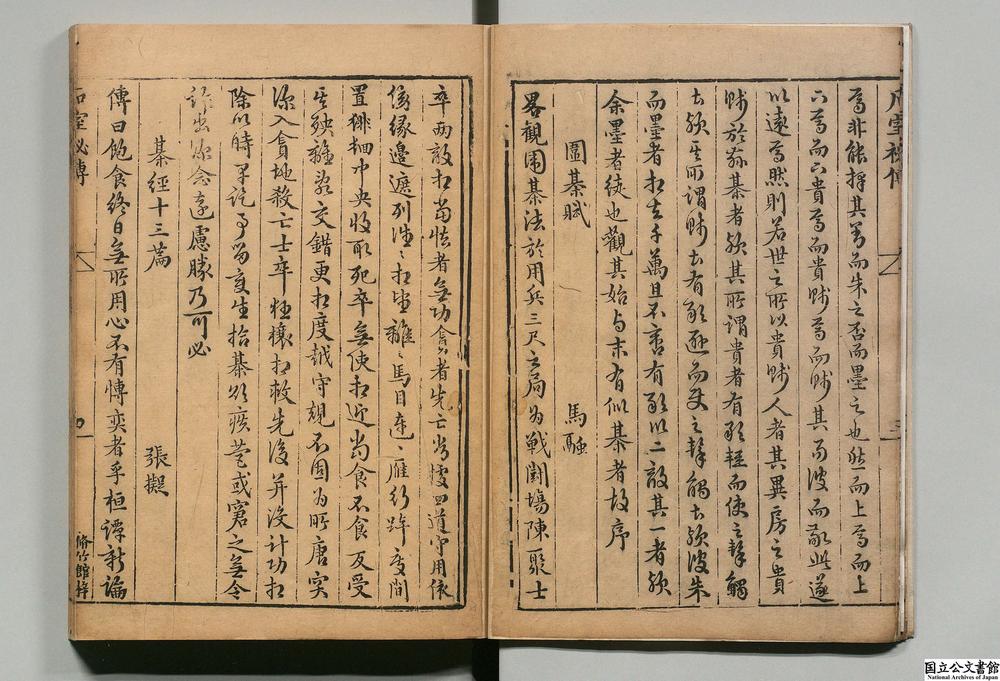 焉非能擇其善而朱之否而墨之也然而上焉而上
下焉而下貴焉而貴賤焉而賤其易彼而敬此遂
以遠焉然則若世之所以貴賤人者其異房之貴
賤於茲棊者歟其所謂貴者有敢輕而使之擊觸
者歟其所謂賤者有敢避而使之擊觸者歟彼朱
而墨者相去千萬且不啻有敢以二敵其一者歟
余墨者徒也觀其始與末有似棊者故序
圍棊賦 馬融
畧觀圍棊法於用兵三尺之局為戰鬭場陳聚士
卒兩敵相當怯者無功貪者先亡先據四道守用依
傍緣邊遮列往往相望離離馬目連連雁行踔度間
置徘徊中央收取死卒無使相迎當食不食反受
其殃離亂交錯更相度越守規不固為所唐突
深入貪地殺亡士卒狂攘相救先後并沒計功相
除以時早訖事留變生拾棊欲疾營或窘之無令
詐出深念遠慮勝乃可必
棊經十三篇 張擬
傳曰飽食終日無所用心不有博奕者乎桓譚新論
石室秘傳
四
脩竹館梓
国立公文書館
National Archives of Japan